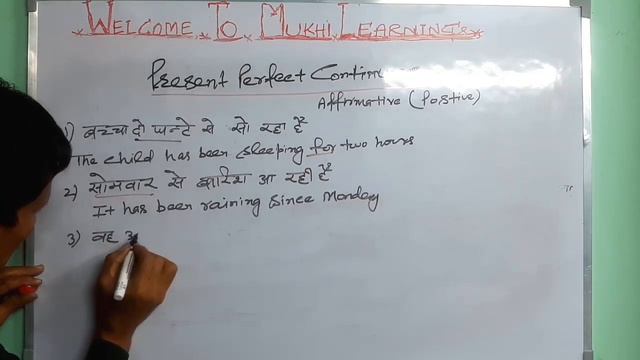 WELCOME TO MUKHI LEARNING
Present Perfect Contin
Affirmative (Postive)
1) बच्चा दो घन्टे से सो रहा है
The child has been sleeping for two hours
2) सोमवार से बारिश आ रही है
It has been raining since Monday
3) वह